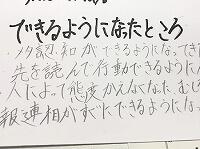 できるようになったところ
・メタ認知ができるようになってきた
先を読んで行動できるように
人によって態度かえなくなった
報連相がすぐにできるようになっ